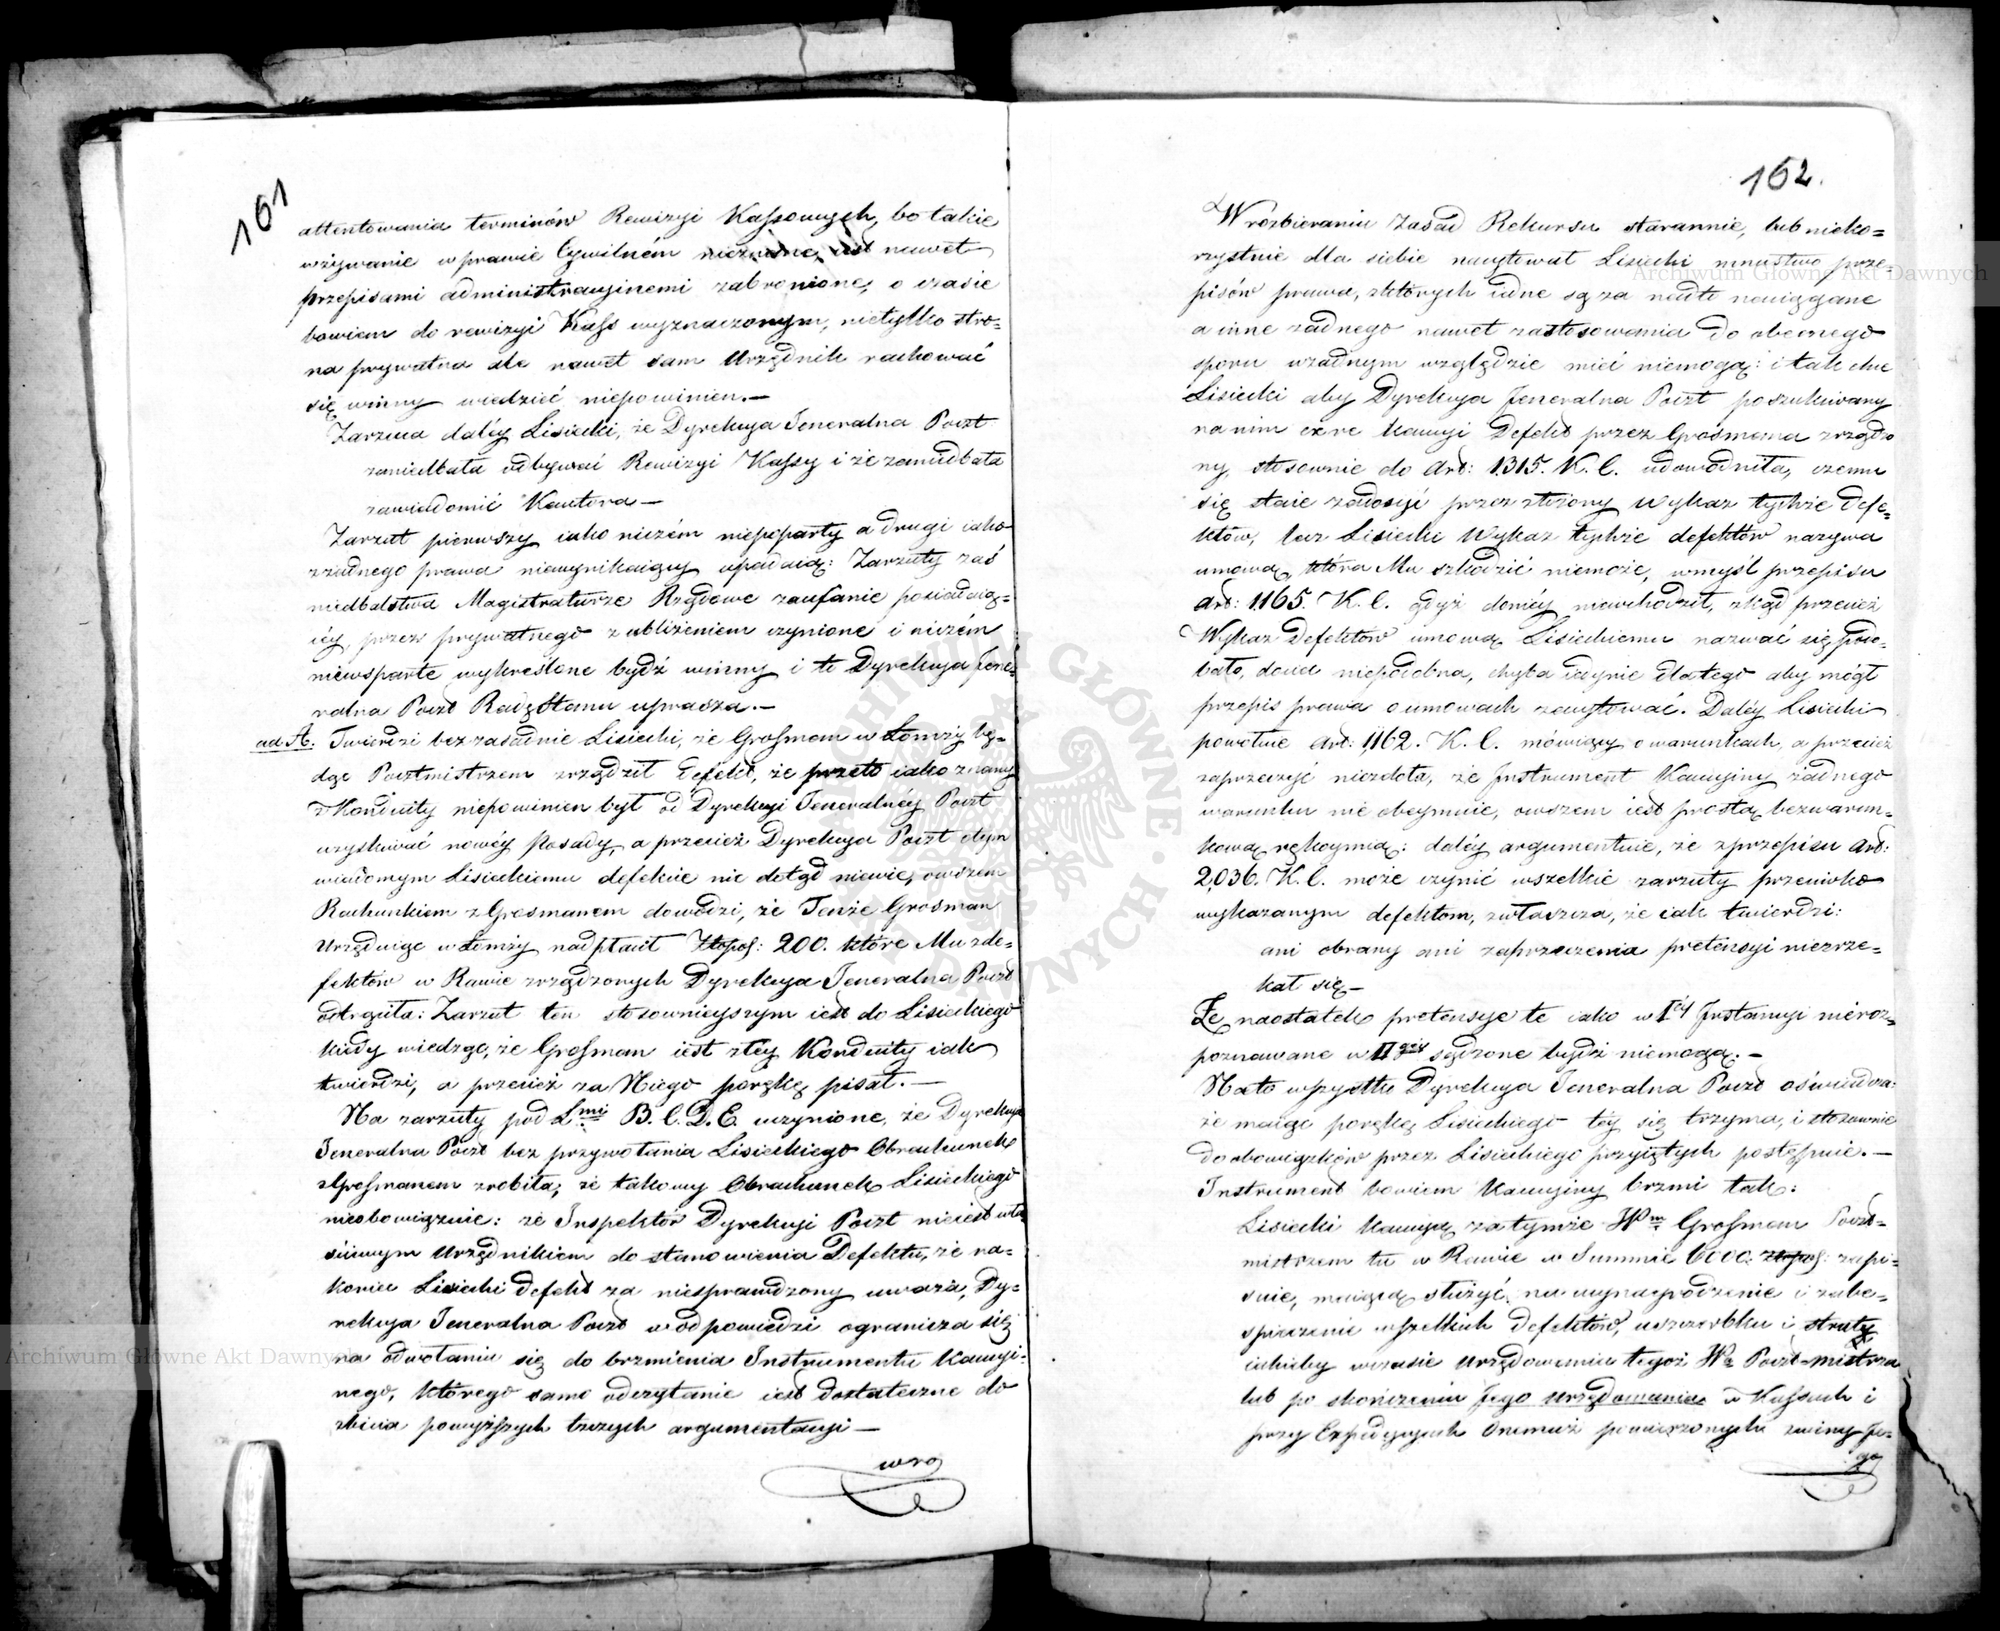 161
attentowania terminów Rewizyi Kassowych, bo takie
wzywanie w prawie Cywilném nieznane, iest nawet
przepisami administracyinemi zabronione, o czasie
bowiem do rewizyi Kass wyznaczonym, nietylko stro=
na prywatna ale nawet sam Urzędnik rachować
się winny wiedzieć niepowinien.—
Zarzuca daléy Lisiecki, że Dyrekcya Jeneralna Poczt
zaniedbała odbywać Rewizyi Kassy i że zaniedbała
zawiadomić Kautora —
Zarzut pierwszy iako niczém niepoparty a drugi iako
z żadnego prawa niewynikaiący upadaią: Zarzuty zaś
niedbalstwa Magistraturze Rządowe zaufanie posiadaią=
céy, przez prywatnego z ubliżeniem czynione i niczém
niewsparte wykreślone bydź winny i to Dyrekcya Jene=
ralna Poczt Radę Stanu uprasza.—
ad A. Twierdzi bezzasadnie Lisiecki, że Grosman w Łomży bę=
dąc Pocztmistrzem zrządził defekt, że przeto iako znany
z Konduity niepowinien był od Dyrekcyi Jeneralnéy Poczt
uzyskiwać nowéy Posady, a przecież Dyrekcya Poczt o tym
wiadomym Lisieckiemu defekcie nic dotąd niewie, owszem
Rachunkiem z Grosmanem dowodzi, że Tenże Grosman
Urzęduiąc w Łomży nadpłacił Złopol: 200. które Mu z de=
fektów w Rawie zrządzonych Dyrekcya Jeneralna Poczt
odtrąciła: Zarzut ten stosownieyszym iest do Lisieckiego
kiedy wiedząc, że Grosman iest złéy Konduity iak
twierdzi, a przecież za Niego porękę pisał.—
Na zarzuty pod L<sup>mi</sup> B. C. D. E. uczynione, że Dyrekcya
Jeneralna Poczt bez przywołania Lisieckiego Obrachunek
z Grosmanem zrobiła; że takowy Obrachunek Lisieckiego
nieobowiązuie: że Inspektor Dyrekcyi Poczt nieiest wła=
ściwym Urzędnikiem do stanowienia Defektu, że na=
koniec Lisiecki defekt za niesprawdzony uważa, Dy=
rekcya Jeneralna Poczt w odpowiedzi ogranicza się
na odwołaniu się do brzmienia Instrumentu Kaucyi=
nego, którego samo odczytanie iest dostateczne do
zbicia powyższych trzech argumentacyi —
162.
W rozbieraniu zasad Rekursu starannie, lub nieko=
rzystnie dla siebie nacytował Lisiecki mnóstwo prze=
pisów prawa, z których iedne są za nadto naciągane
a inne żadnego nawet zastosowania do obecnego
sporu w żadnym względzie mieć niemogą: i tak chce
Lisiecki aby Dyrekcya Jeneralna Poczt poszukiwany
na nim ex re Kaucyi Defekt przez Grosmana zrządzo
ny, stosownie do Art: 1315. K. C. udowodniła, czemu
się staie zadosyć przez złożony Wykaz tychże Defe=
któw, lecz Lisiecki Wykaz tychże defektów nazywa
umową, która Mu szkodzić niemoże, w myśl przepisu
Art: 1165. K. C. gdyż do niéy niewchodził, zkąd przecież
Wykaz Defektów umową Lisieckiemu nazwać się podo=
bało, dociec niepodobna, chyba iedynie dlatego aby mógł
przepis prawa o umowach zacytować. Daléy Lisiecki
powołuie Art: 1162. K. C. mówiący o warunkach, a przecież
zaprzeczyć niezdoła, że Instrument Kaucyiny żadnego
warunku nie obeymuie, owszem iest prostą, bezwarun=
kową rękoymią: daléy argumentuie, że z przepisu Art:
2,036. K. C. może czynić wszelkie zarzuty przeciwko
wykazanym defektom, zwłaszcza, że iak twierdzi:
ani obrany ani zaprzeczenia pretensyi niezrze=
kał się —
Że naostatek pretensye te iako w I<sup>éy</sup> Instancyi nieroz=
poznawane w II<sup>giéy</sup> sądzone bydź niemogą.—
Na to wszystko Dyrekcya Jeneralna Poczt oświadcza:
że maiąc porękę Lisieckiego téy się trzyma, i stosownie
do obowiązków przez Lisieckiego przyiętych postępuie.—
Instrument bowiem Kaucyiny brzmi tak:
Lisiecki kaucyą za tymże W<sup>m</sup> Grosman Poczt=
mistrzem tu w Rawie w Summie 6000. Złopol: zapi=
suie, maiącą służyć na wynagrodzenie i zabe=
spieczenie wszelkich defektów, uszczerbku i straty
iakieby w czasie Urzędowania tegoż W<sup>o</sup> Poczt=mistrza
lub po skończeniu Jego Urzędowania w Kassach i
przy Expedycyach Onemuż powierzonych z winy Je=
go